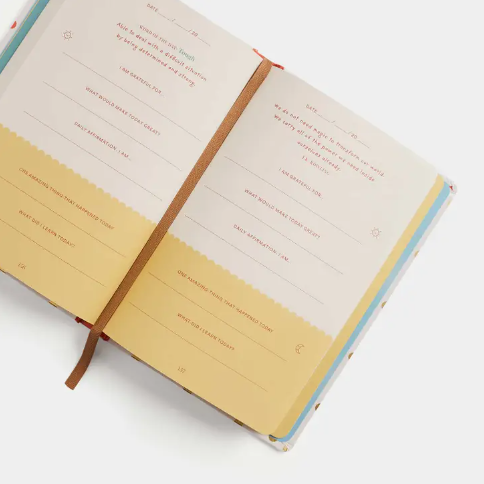 DATE __/__/20__
WORD OF THE DAY: Tough
Able to deal with a difficult situation
by being determined and strong.
I AM GRATEFUL FOR...
WHAT WOULD MAKE TODAY GREAT?
DAILY AFFIRMATION. I AM...
ONE AMAZING THING THAT HAPPENED TODAY
WHAT DID I LEARN TODAY?
DATE __/__/20__
We do not need magic to transform our world.
We carry all the power we need inside
ourselves already.
I AM GRATEFUL FOR...
WHAT WOULD MAKE TODAY GREAT?
DAILY AFFIRMATION. I AM...
ONE AMAZING THING THAT HAPPENED TODAY
WHAT DID I LEARN TODAY?